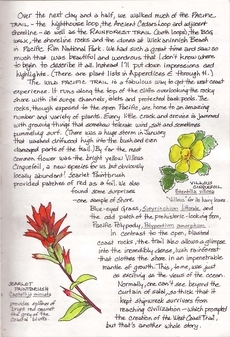 Over the next day and a half, we walked much of the PACIFIC
TRAIL - the lighthouse loop, the Ancient Cedars Loop and adjacent
shoreline - as well as the RAINFOREST TRAIL (both loops), the Bog
walk, the shoreline rocks and the dunes at Wickaninnish Beach
in Pacific Rim National Park. We had such a great time and saw so
much that was beautiful and wondrous that I don't know where
to begin to describe it all. Instead I'll put down impressions and
highlights. (There are plant lists in Appendices
THE WILD PACIFIC TRAIL is a fabulous way to get the west coast
experience. It runs along the top of the cliffs overlooking the rocky
shore with its surge channels, islets and protected beach pockets. The
rocks, though exposed to the open Pacific, are home to an amazing
number and variety of plants. Every little crack and crevice is jammed
with growing things that somehow tolerate wind, salt and sometimes
pummeling surf. (There was a huge storm in January
that washed driftwood high into the bush and even
damaged parts of the trail.) By far the next
common flower was the bright yellow Villous
Cinquefoil, a new species for us but obviously
locally abundant! Scarlet Paintbrush
provided patches of red as a foil. We also
found some surprises
- one clump of shore
Blue-eyed Grass, Sisyrinchium littorale, and
the odd patch of the prehistoric-looking fern,
Pacific Polypody, Polypodium amorphum.
In contrast to the open, blasted
coast rocks, the trail also allows a glimpse
into the incredibly dense, lush rainforest
that clothes the shore in an impenetrable
mantle of growth. This, to me, was just
as exciting as the views of the ocean.
Normally, one can't see beyond the
curtain of salal, so thick that it
kept shipwreck survivors from
reaching civilization - which prompted
the creation of the West Coast Trail,
but that's another whole story.
VILLOUS
CINQUEFOIL
Potentilla villosa
"Villous" for its hairy leaves
SCARLET
PAINTBRUSH
Castilleja miniata
provides splashes of
bright red against
the grey of the
coastal bluffs.